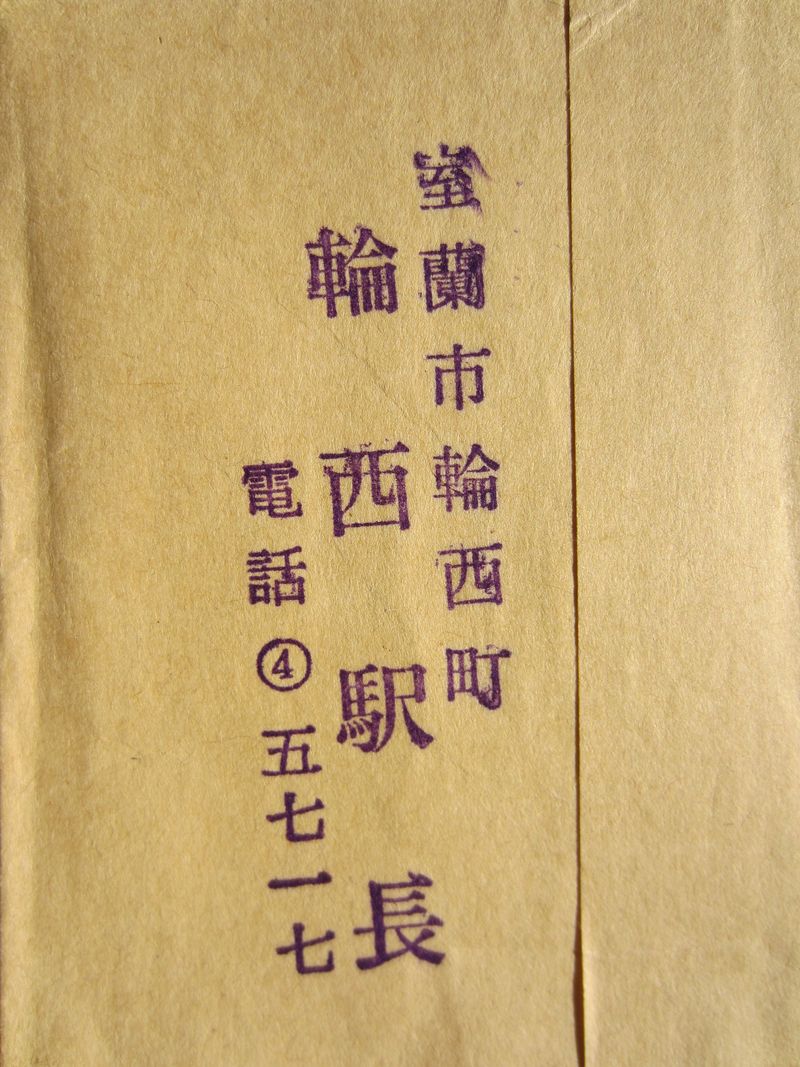 室蘭市輪西町
輪西駅長
電話④五七一七